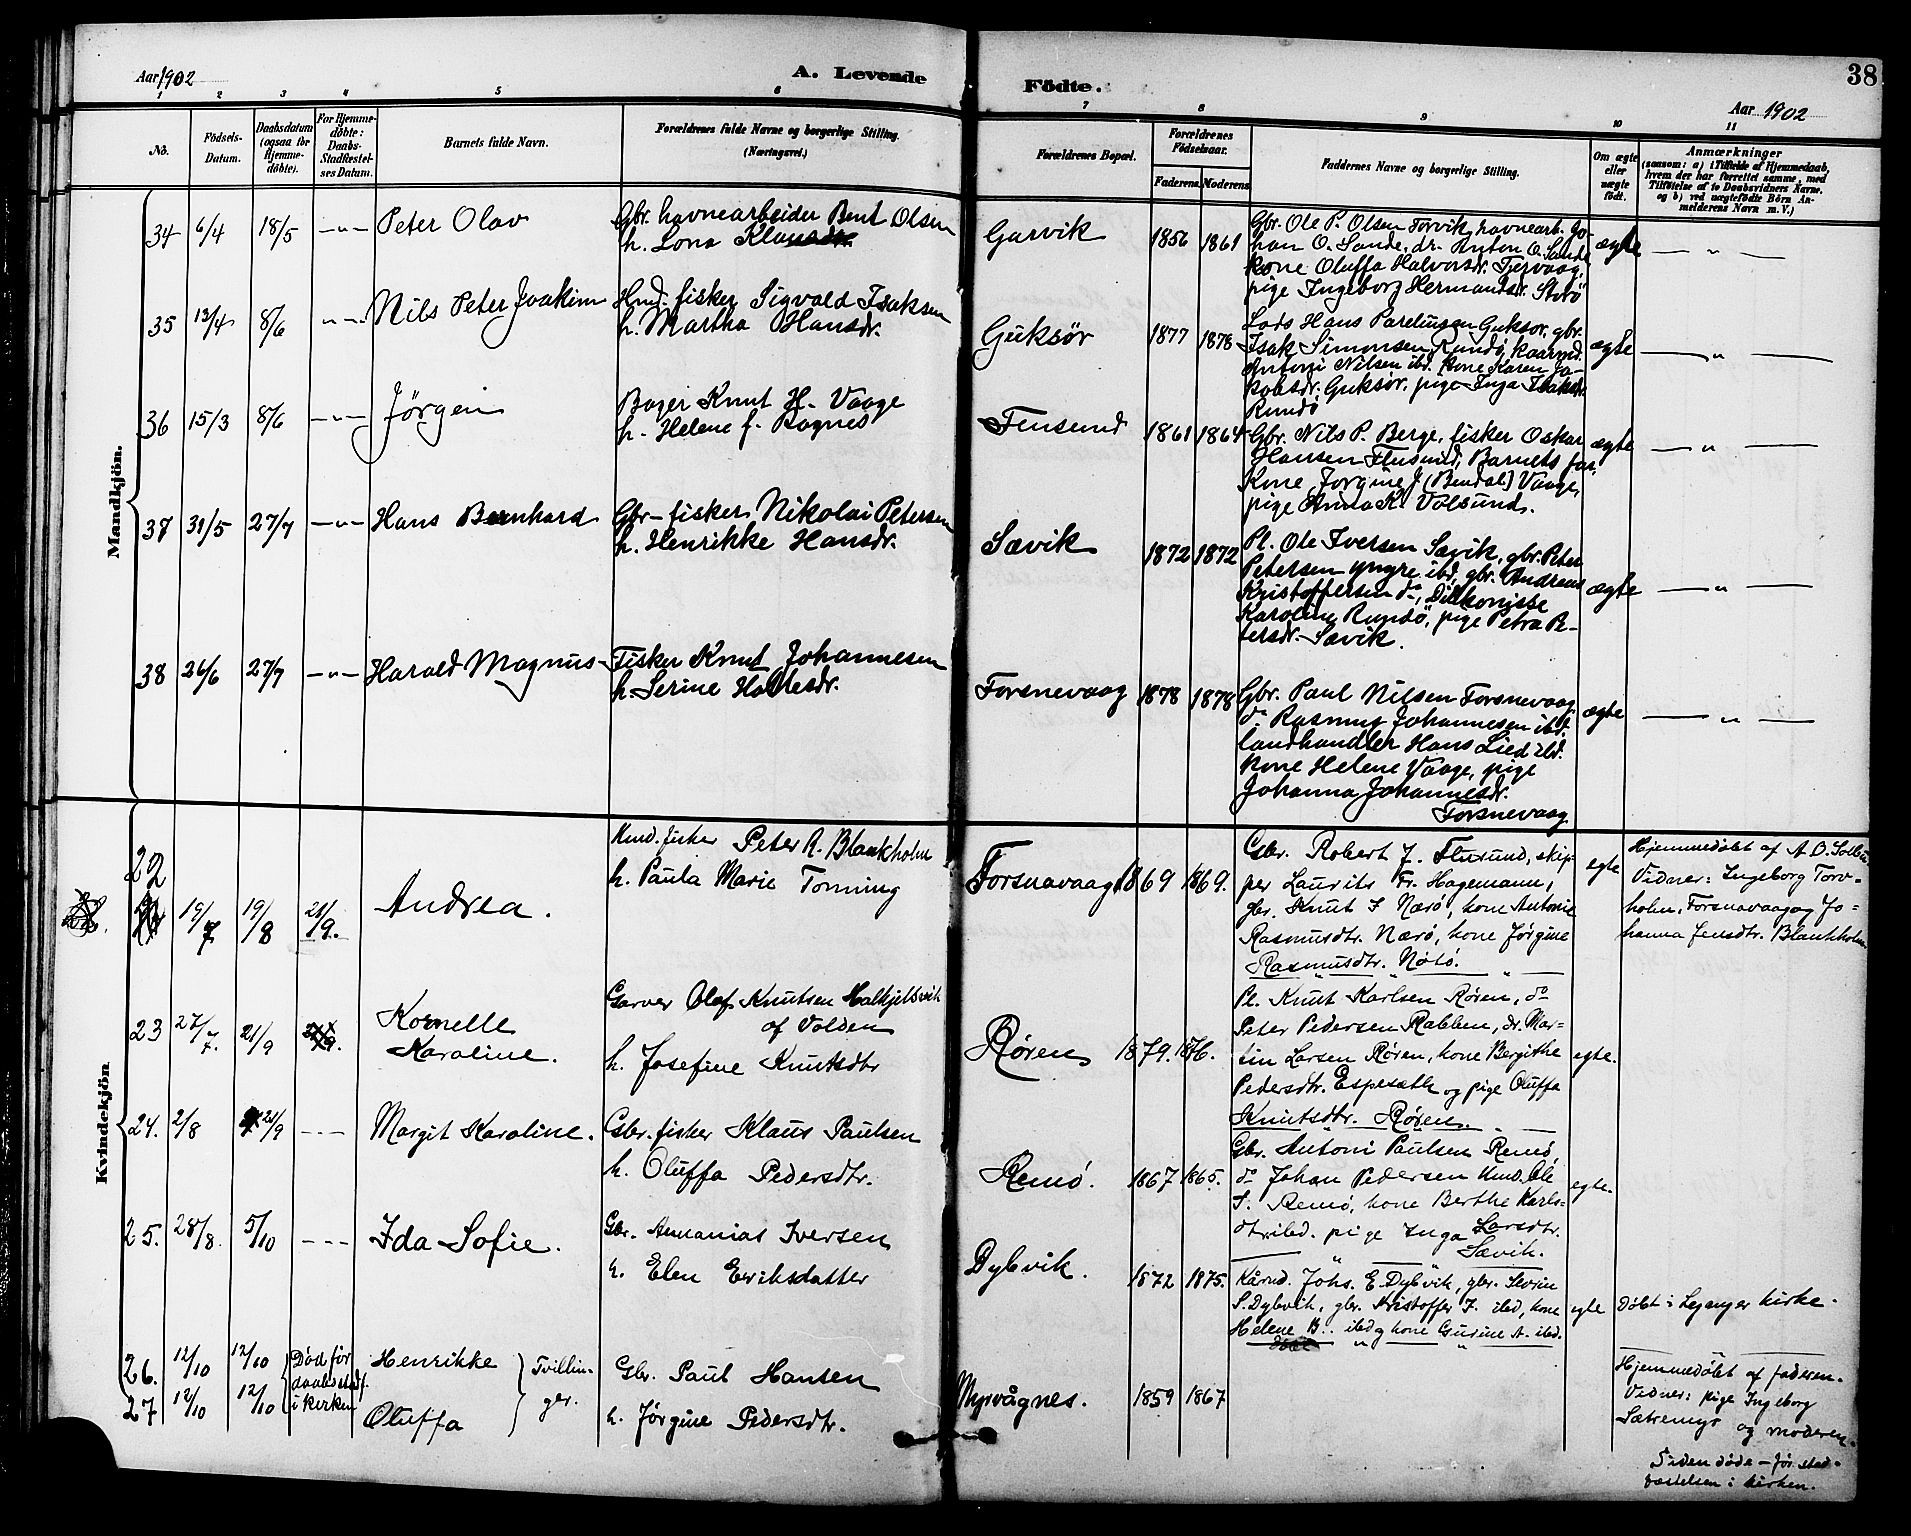 Aar 1902
A. Levende
Födte.
38
Aar 1902
1 2 3 4 5 6 7 8 9 10 11
No.
Födsels-
Datum.
Daabsdatum
(ogsaa for
Hjemme-
döbte).
For Hjemme-
döbte:
Daabs-
Stadfæstel-
ses Datum.
Barnets fulde Navn.
Forældrenes fulde Navne og borgerlige Stilling.
(Næringsvei.)
Forældrenes Bopæl.
Forældrenes
Födselsaar.
Faderens. Moderens.
Faddernes Navne og borgerlige Stilling.
Om ægte
eller
uægte
født.
Anmærkninger
(saasom: a) i Tilfælde af Hjemmedaab,
hvem der har forrettet samme, med
Tilföielse af to Daabsvidners Navne.
og b) ved uægtefödte Börn An-
melderens Navn m. V.)
Mandkjön.
34 6/4 18/5 —"— Peter Olav
Gbr. havnearbeider Bent Olsen
h. Lona Klausdr.
Garvik 1856 1861
Gbr. Ole P. Olsen Torvik, havnearb. Jo-
han O. Sande, dr. Anton O. Sande
kone Oluffa Halvorsdr. Tjervaag,
pige Ingeborg Hermandsdr. Storö
ægte — " —
35 13/4 8/6 —"— Nils Peter Joakim
Hmd. fisker Sigvald Isaksen
h. Martha Hansdr.
Guksør 1877 1878
Lods Hans Parelinsen Guksør, gbr.
Isak Simonsen Rundö, kaarmd.
Antoni Nilsen ibd. kone Karen Ja-
kobsdr. Guksør, pige Inga Isaksdr.
Rundö
ægte — " —
36 15/3 8/6 —"— Jørgen
Bager Knut H. Vaage
h. Helene f. Rognes
Flusund 1861 1864
Gbr. Nils P. Berge, fisker Oskar
Hansen Flusund, Barnets far,
Kone Jorgine J (Bendal) Vaage,
pige Anna K. Volsund.
ægte — " —
37 31/5 27/7 —"— Hans Bernhard
Gbr-fisker Nikolai Petersen
h. Henrikke Hansdr.
Sævik 1872 1872
Pl. Ole Iversen Sævik, gbr. Peter
Petersen yngre ibd, gbr. Andreas
Kristoffersen do, Diakonisse
Karoline Rundö, pige Petra Pe-
tersdr. Sævik.
ægte — " —
38 26/6 27/7 —"— Harald Magnus
Fisker Knut Johannesen
h. Serine Hansdr.
Forsnevaag 1878 1878
Gbr. Paul Nilsen Forsnevaag
do Rasmus Johannesen ibd.
landhandler Hans Lied ibd.
kone Helene Vaage, pige
Johanna Johannesdr.
Forsnevaag
ægte — " —
Kvindekjön
22 19/7 19/8 21/9. Andrea.
Kmd. fisker Peter R. Blankholm
h. Paula Marie Tonning
Forsnavaag 1869 1869.
Gbr. Robert J. Flusund, skip-
per Laurits Fr. Hagemann,
gbr. Knut I Nærö, kone Antonie
Rasmusdtr. Nærö, kone Jørgine
Rasmusdtr. Nötö.
egte
Hjemmedøbt af A. O.
Vidner: Ingeborg Torv-
holm, Forsnavaag og Jo-
hanna Jensdtr. Blankholm.
23 27/7. 21/9 Kornelle
Karoline.
Garver Olaf Knutsen Halkjelsvik
af Volden
h. Josefine Knutsdtr
Røren 1879. 1876.
Pl. Knut Karlsen Røren, do
Peter Pedersen Rabben, dr. Mar-
tin Larsen Røren, kone Bergithe
Pedersdtr. Espesæth og pige Oluffa
Knutsdtr. Røren.
egte.
24. 2/8 21/9 --- Margit Karoline.
Gbr. fisker Klaus Paulsen
h. Oluffa Pedersdtr.
Remö. 1867 1865.
Gbr. Antoni Paulsen Remö,
do Johan Pedersen Kmd. Ole
S. Remö, kone Berthe Karls-
dtr ibd. pige Inga Larsdtr.
Sævik.
egte.
25. 28/8. 5/10 --- Ida Sofie.
Gbr. Annanias Iversen
h. Elen Eriksdatter
Dybvik. 1872 1875.
Kårmd. Johs. E. Dybvik, gbr. Sevrin
S. Dybvik, gbr. Kristoffer I. ibd, kone
Helene B. ibd og kone Gurine A. ibd.
egte
Døbt i Lejanger kirke.
26. 12/10 12/10 Død før
daabsstadf.
i kirken
Henrikke
27 12/10 12/10 Oluffa
Tvillin-
ger.
Gbr. Paul Hansen
h. Jørgine Pedersdtr.
Myrvågnes. 1859 1867
Hjemmedøbt af faderen.
Vidner: pige Ingeborg
Sætremyr og moderen.
Siden døde – før stad-
fæstelsen i kirken.